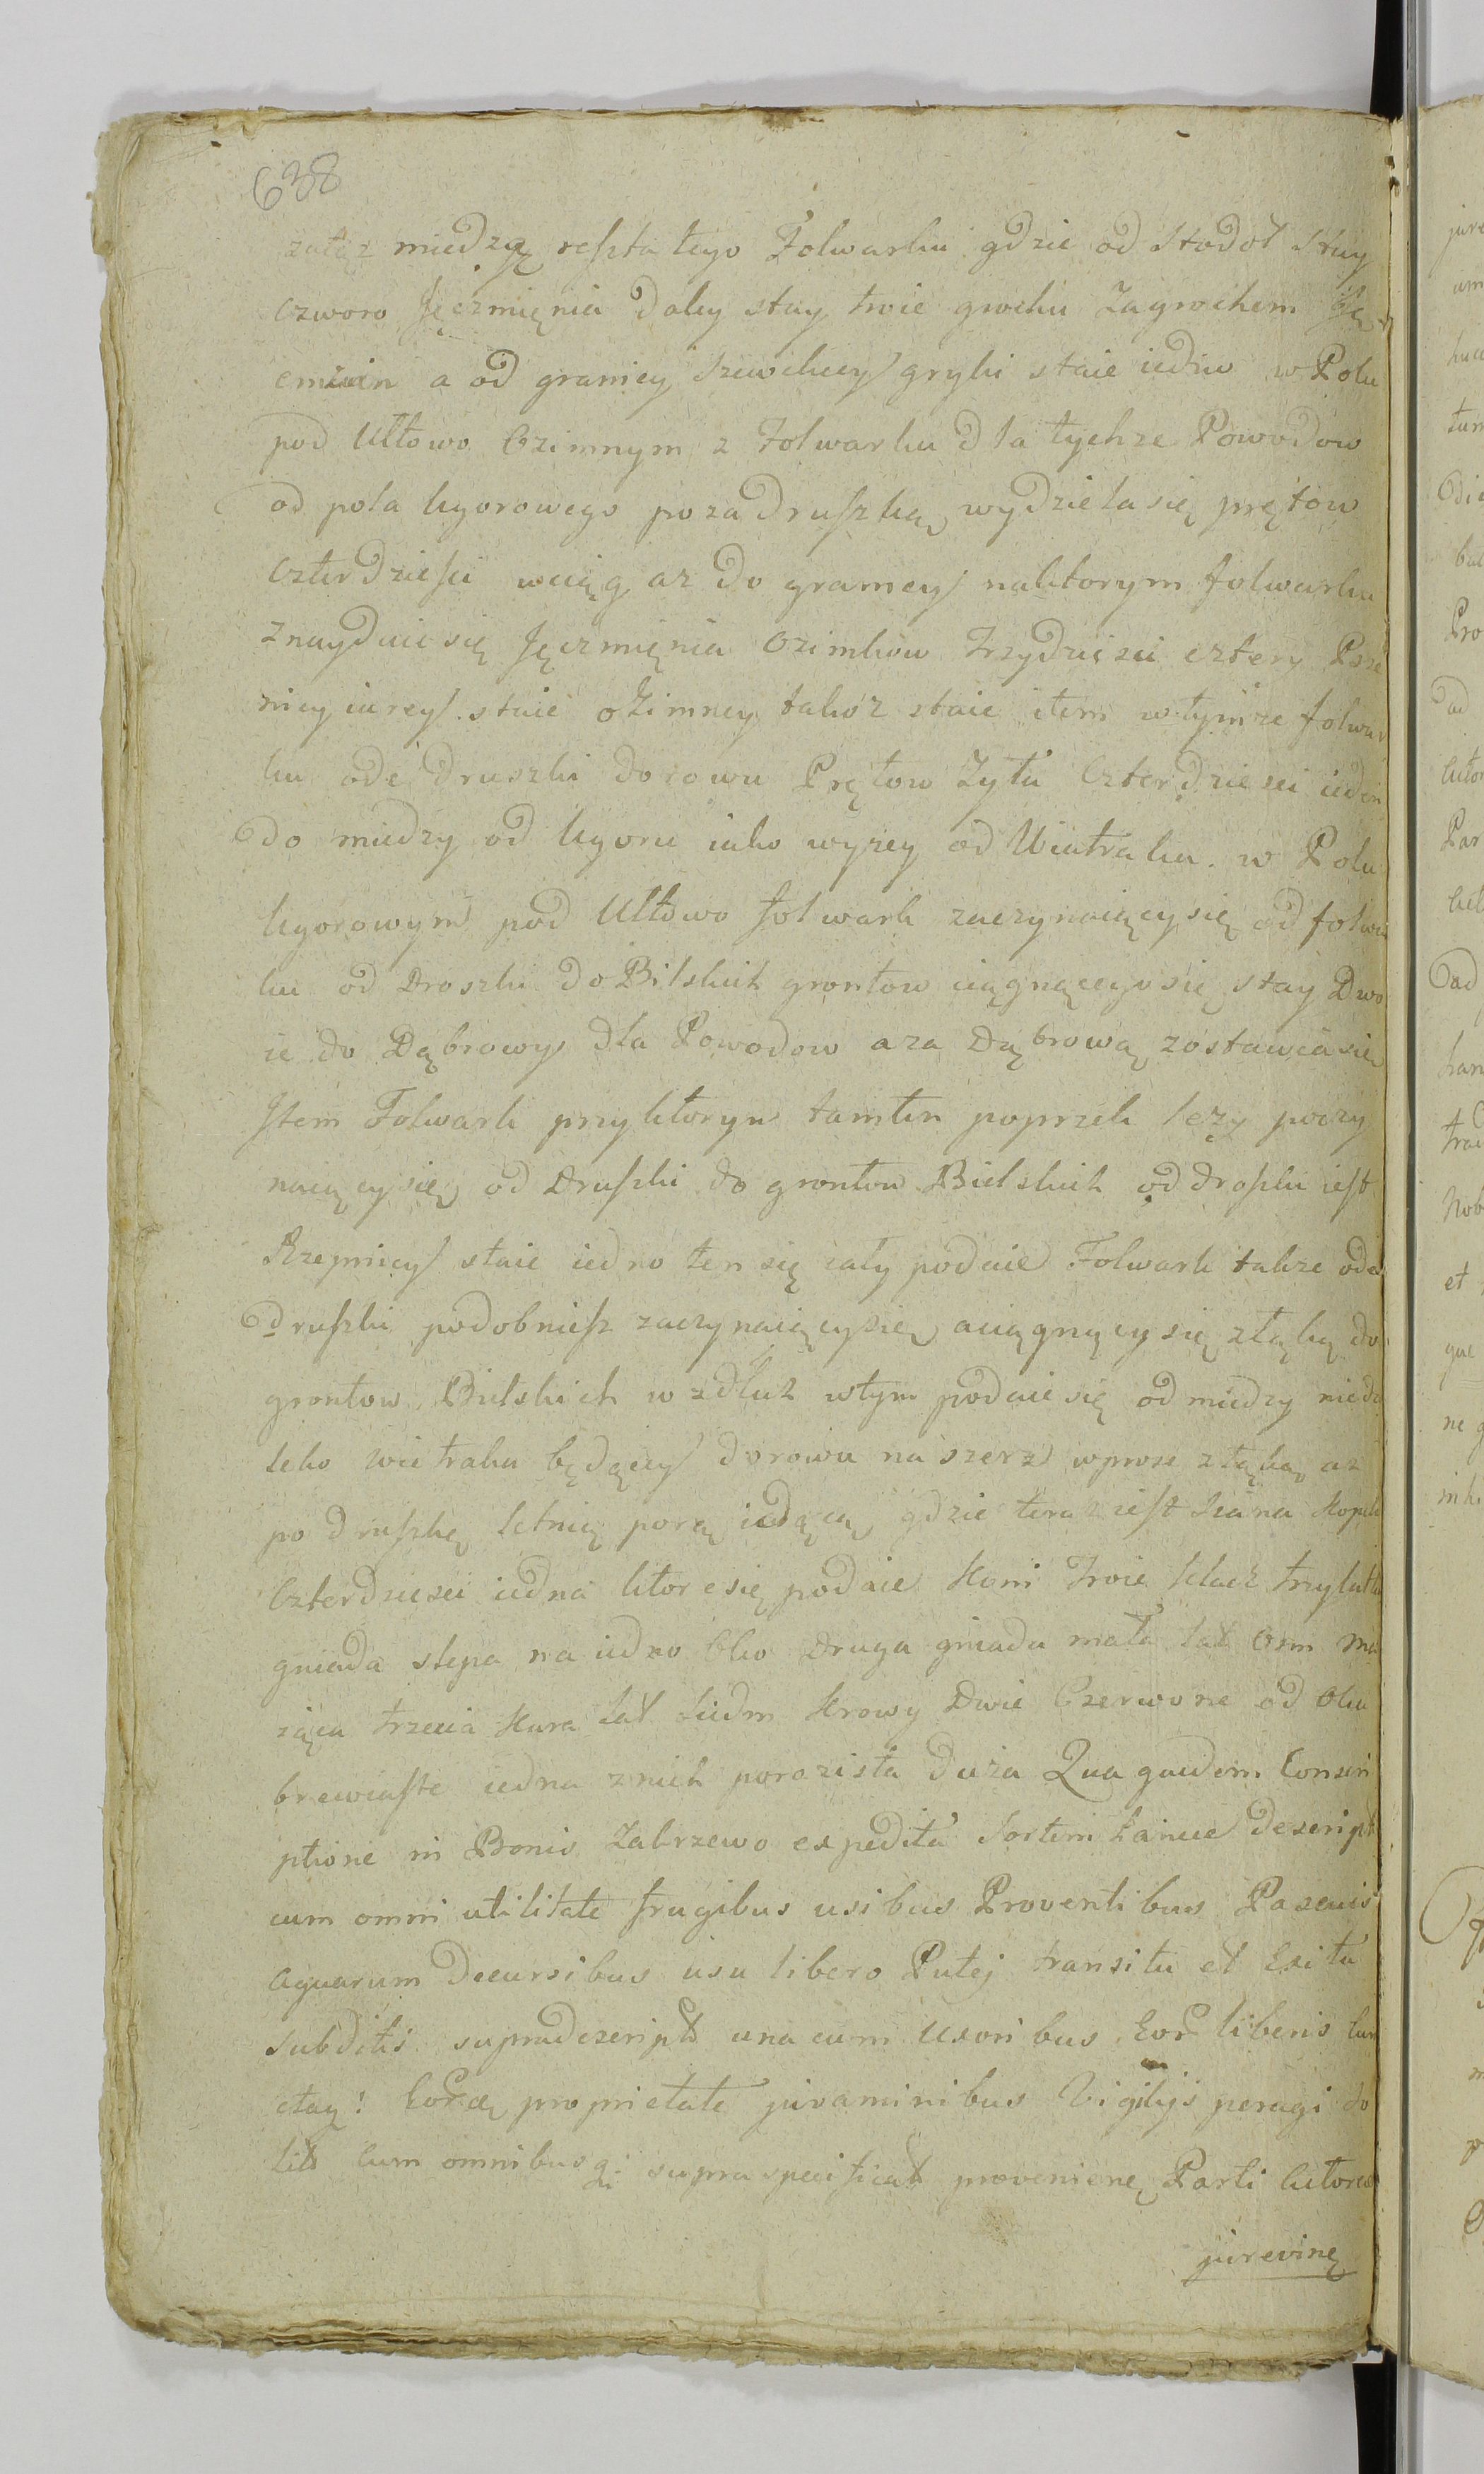 638
zaląz miedzą resztą tego Folwarku gdzie od Stodoł stay
czworo Jęczmięnia daley stay troie grochu Zagrochem Ję
czmien a od granicy Szewckiey gryki staie iedno w Polu
pod Ułtowo Ozimnym z Folwarku dla tychze Powodow
od pola Ugorowego poza druszką wydziela się prętow
czterdzieści wciąg az do granicy naktorym folwarku
znayduie się Jęczmięnia Ozimkow Trzydziesci cztery Psze
nicy iarey staie ozimney takoz staie item wtymze folwar
ku ode druszki dorowu Prętow Zyta Czterdziesci ieden
do miedzy od Ugoru iako wyzey od Wiatraku. w Polu
Ugorowym pod Ułtowo folwark zaczynaiący się od folwar
ku od Droszki do Bilskich grontow ciągnącego się stay Dwo
ie do Dąbrowy dla Powodow aza Dąbrową zostawia się
Item Folwark przyktorym tamten poprzek lezy poczy
naiący się od Druszki do grontow Bielskich od droszki iest
Rzepnicy staie iedno ten się cały podaie Folwark takze ode
druszki podobniesz zaczynaiący się aciągnący się złąką do
grontow Bielskich wzdłuz wtym podaie się od miedzy nieda
leko wiatraku będącey dorowu na szerz wprost złąką az
po druszkę letnią porą iadącą gdzie teraz iest siana Kopek
Czterdziesci iedna ktore się podaie Koni Troie klacz trzyletnia
gniada slepa na iedno Oko Druga gniada mała lat Osm ma
iąca trzecia Kara lat siedm Krowy Dwie Czerwone od Oku
brewiaste iedna znich porozista duza Qua quidem Conscri
ptione in Bonis Zakrzewo expedita Sortem hancce descript
cum omni utilitate frugibus usibus Proventibus Pascuis
aquarum decursibus usu libero Putej transitu et Exitu
subditis supradescript una cum Uxoribus Eor liberis cun
ctaq: Eorq proprietate juraminibus Vigilijs peragi so
lit cum omnibusq: supra specificat provenienę Parti Actoreae
jurevinę